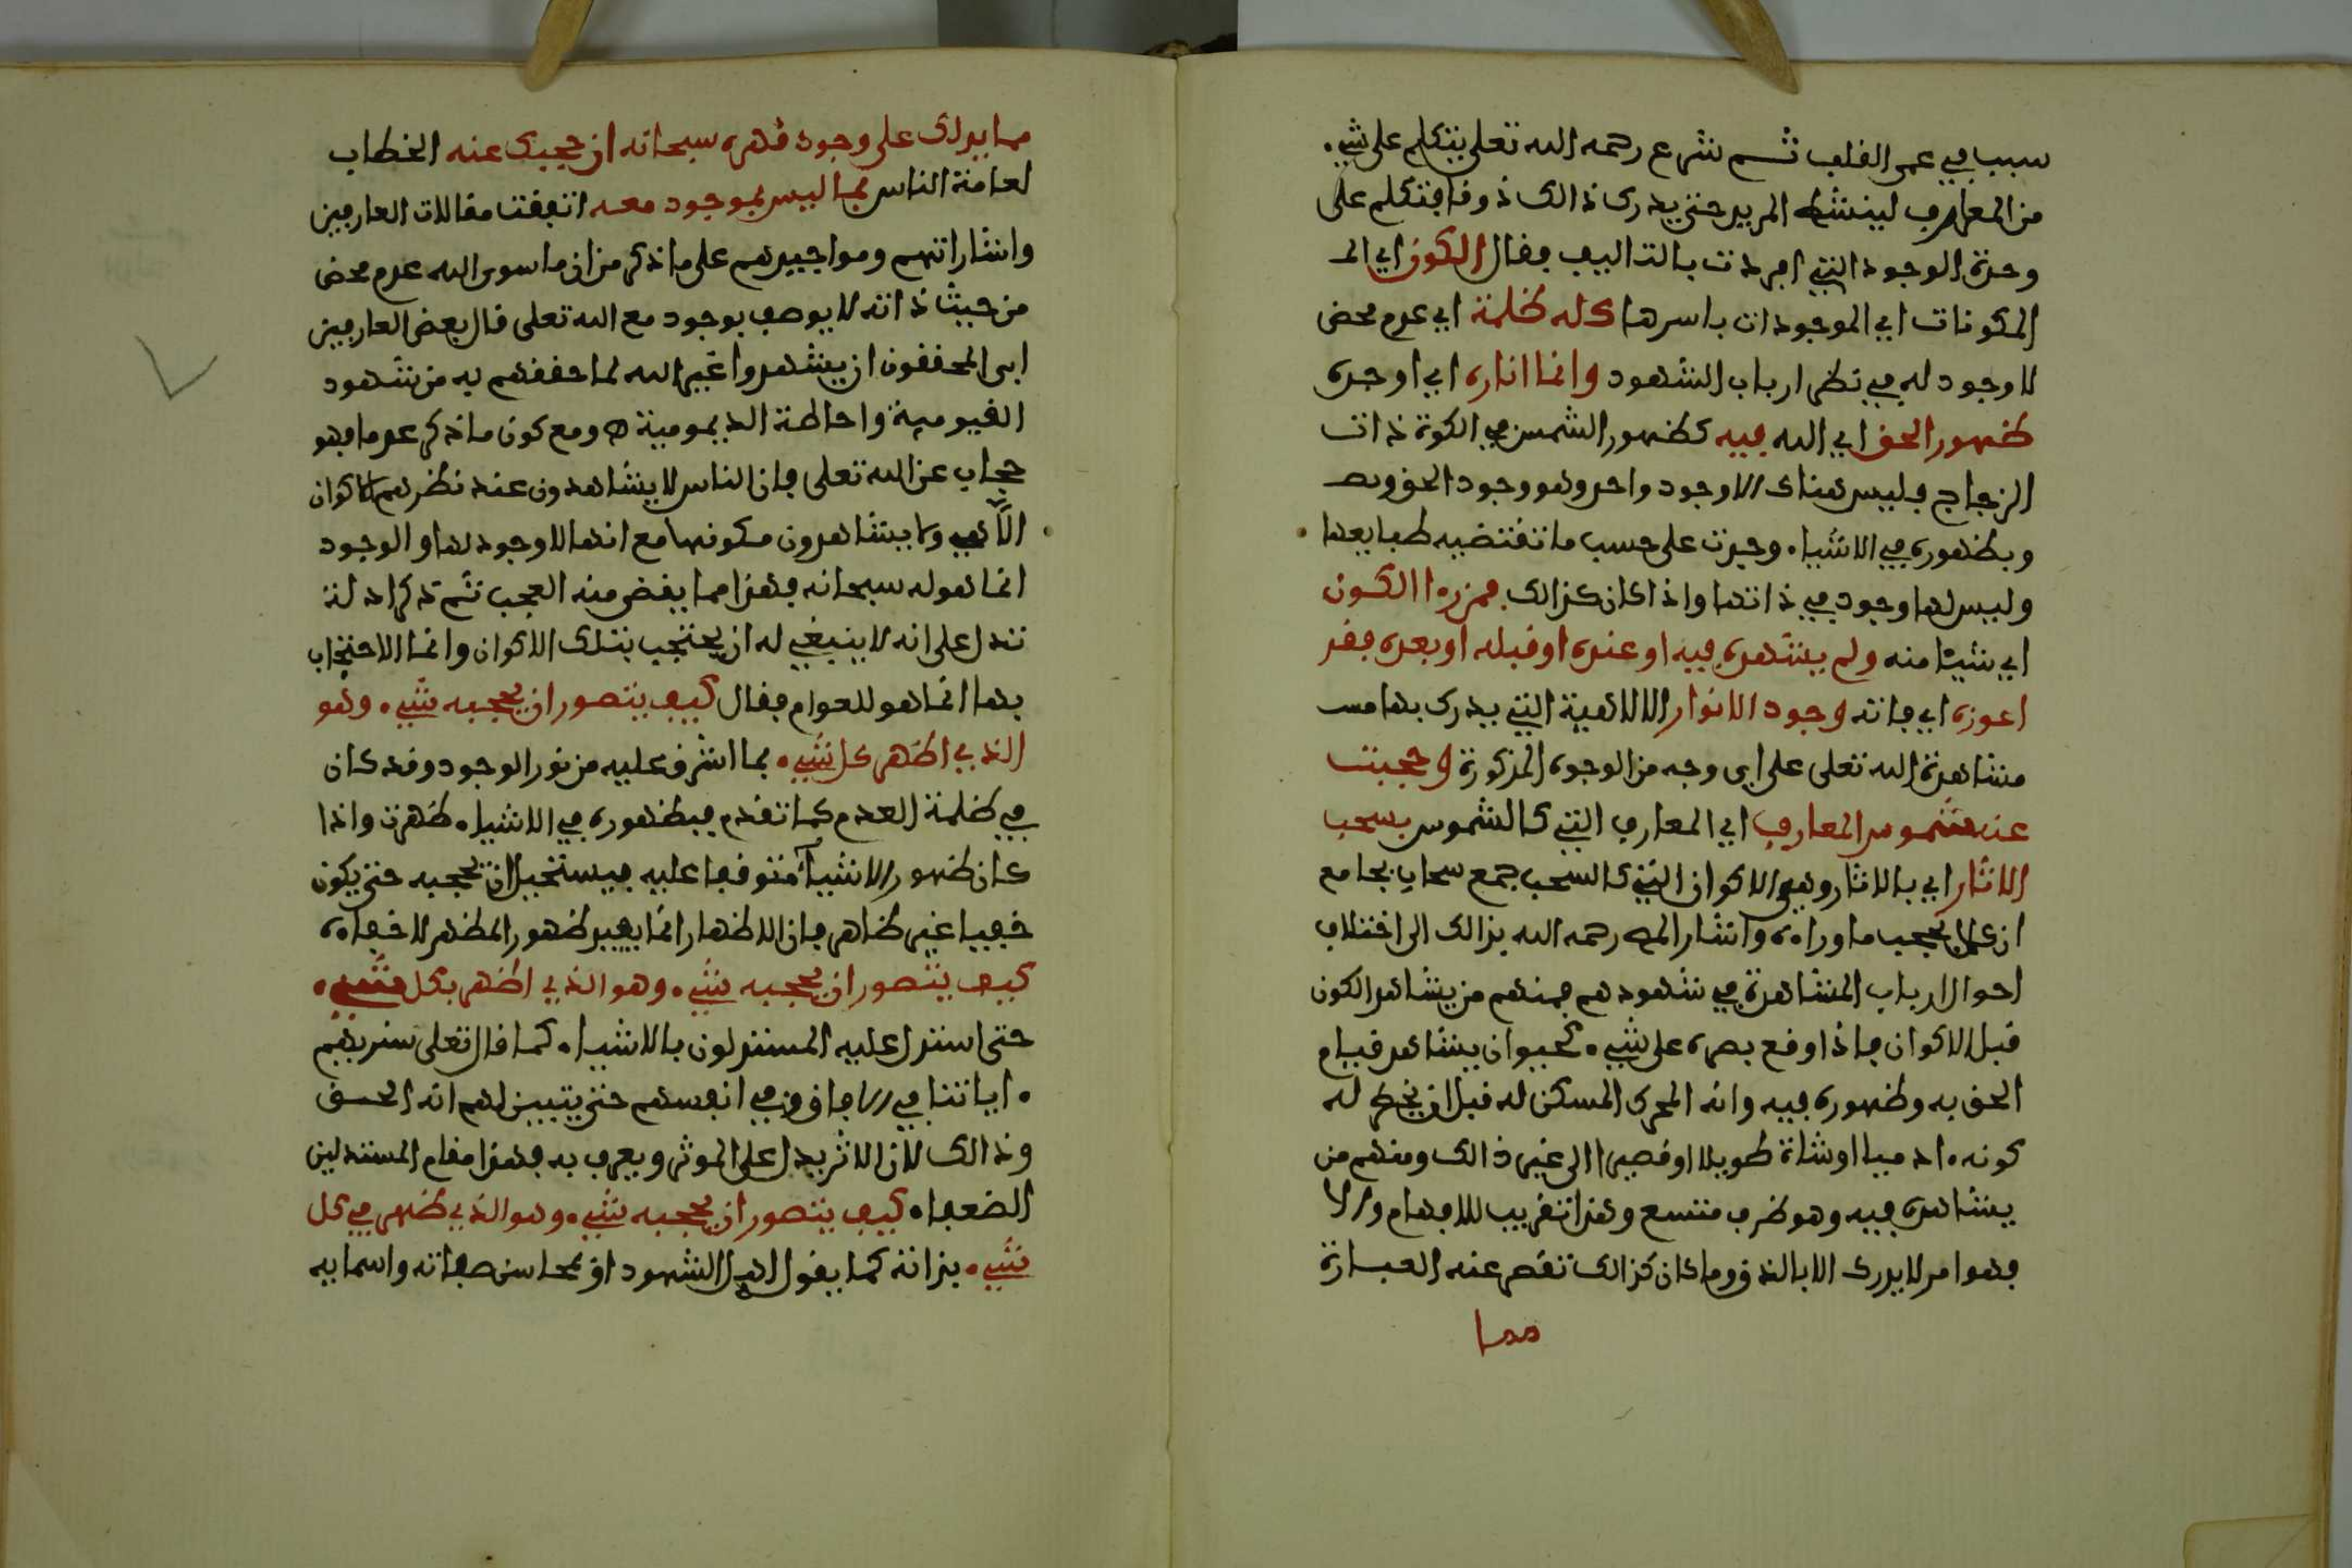 سببا في عمى القلب ثم شرع رحمه الله تعلى يتكلم على شيء
من المعارف لينشط المريد حتى يدرك ذالك ذوقا فتكلم على
وحدة الوجود التي افردت بالتاليف فقال الكون اي
المكونات اي الموجودات باسرها كله ظلمة اي عدم محض
لا وجود له في نظر ارباب الشهود وانما اناره اي اوجده
ظهور الحق اي الله فيه كظهور الشمس في الكوة ذات
الزجاج فليس هناك الا وجود واحد وهو وجود الحق
وبظهوره في الاشياء وجدت على حسب ما تقتضيه طبايعها
وليس لها وجود في ذاتها واذا كان كذالك فمن رءا الكون
اي شيئا منه ولم يشهده فيه او عنده او قبله او بعده فقد
اعوزه اي فاته وجود الانوار الالاهية التي يدرك بها
مشاهدة الله تعلى على اي وجه من الوجوه المذكورة وحجبت
عنه شموس المعارف اي المعارف التي كالشموس بسحب
الاثار اي بالاثار وهي الاكوان التي كالسحب جمع سحاب بجامع
ان كلا يحجب ما وراءه واشار المص رحمه الله بذالك الى اختلاف
احوال ارباب المشاهدة في شهودهم فمنهم من يشاهد الكون
قبل الاكوان فاذا وقع بصره على شيء كحيوان يشاهد قيام
الحق به وظهوره فيه وانه المحرك المسكن له قبل ان يخطر له
كونه ادميا او شاة طويلا او قصيرا الى غير ذالك ومنهم من
يشاهده فيه وهو ظرف متسع وهذا تقريب للافهام والا
فهو امر لا يدرك الا بالذوق وما كان كذالك تقصر عنه العبارة
مما
مما يدلك على وجود قهره سبحانه ان حجبك عنه الخطاب
لعامة الناس بما ليس بموجود معه اتفقت مقالات العارفين
واشاراتهم ومواجيدهم على ما ذكر من ان ما سوى الله عدم محض
من حيث ذاته لا يوصف بوجود مع الله تعلى قال بعض العارفين
ابى المحققون ان يشهدوا غير الله لما حققهم به من شهود
القيومية واحاطة الديمومية ه ومع كون ما ذكر عدما فهو
حجاب عن الله تعلى فان الناس لا يشاهدون عند نظرهم للاكوان
الا هي ولا يشاهدون مكونها مع انها لا وجود لها والوجود
انما هو له سبحانه فهذا مما يقضى منه العجب ثم ذكر ادلة
تدل على انه لا ينبغي له ان يحتجب بتلك الاكوان وانما الاحتجاب
بها انما هو للعوام فقال كيف يتصور ان يحجبه شيء وهو
الذي اظهر كل شيء بما اشرق عليه من نور الوجود وقد كان
في ظلمة العدم كما تقدم فبظهوره في الاشياء ظهرت واذا
كان ظهور الاشياء متوقفا عليه فيستحيل ان تحجبه حتى يكون
خفيا غير ظاهر فان الاظهار انما يفيد ظهور المظهر لا خفاءه
كيف يتصور ان يحجبه شيء وهو الذي اظهر بكل شيء
حتى استدل عليه المستدلون بالاشياء كما قال تعلى سنريهم
ءاياتنا في الافاق وفي انفسهم حتى يتبين لهم انه الحق
وذالك لان الاثر يدل على الموثر ويعرف به فهذا مقام المستدلين
الضعفاء كيف يتصور ان يحجبه شيء وهو الذي ظهر في كل
شيء بذاته كما يقول اهل الشهود او بمحاسن صفاته واسمايه